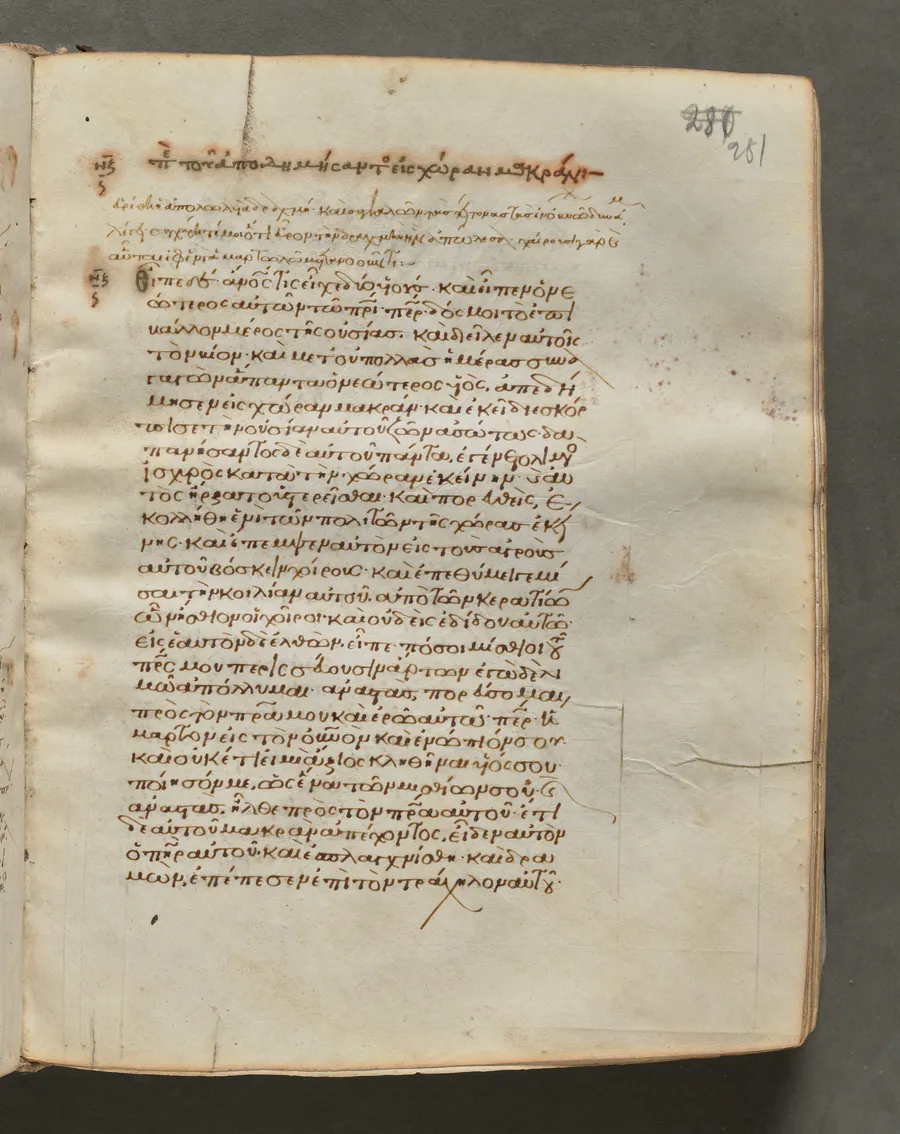 280
281
νζ πε τοῦ ἀποδημήσαντος εἰς χώραν μακράν:—
ς
νζ Εἶπε δὲ· ἀνος τις εἶχε δύο υἱούς· καὶ εἶπεν ὁ νε
ς ώτερος αὐτῶν τῶ πρι· περ· δός μοι τὸ ἐπι
βάλλον μέρος τῆς οὐσίας. καὶ διεῖλεν αὐτοῖς
τὸν βίον· καὶ μετ' οὐ πολλὰς ἡμέρας συνα
γαγὼν ἅπαντα ὁ νεώτερος υἱὸς, ἀπεδή
μησεν εἰς χώραν μακράν· καὶ ἐκεῖ διεσκόρ
πισε τὴν οὐσίαν αὐτοῦ ζῶν ἀσώτως· δα
πανήσαντος δὲ αὐτοῦ πάντα, ἐγένετο λιμὸς
ἰσχυρὸς κατὰ τὴν χώραν ἐκείνην· καὶ αὐ
τὸς ἤρξατο ὑστερεῖσθαι· καὶ πορευθεὶς, ἐ
κολλήθη ἑνὶ τῶν πολιτῶν τῆς χώρας ἐκεί
νης· καὶ ἔπεμψεν αὐτὸν εἰς τοὺς ἀγροὺς
αὐτοῦ βόσκειν χοίρους· καὶ ἐπεθύμει γεμί
σαι τὴν κοιλίαν αὐτοῦ. ἀπὸ τῶν κερατίων
ὧν ἤσθιον οἱ χοῖροι· καὶ οὐδεὶς ἐδίδου αὐτῶ·
εἰς ἑαυτὸν δὲ ἐλθὼν. εἶπε· πόσοι μίσθιοι τοῦ
πρς μου περισσεύουσιν ἄρτων ἐγὼ δὲ λι
μῶ ἀπόλλυμαι· ἀναστὰς, πορεύσομαι
πρὸς τὸν πρα μου καὶ ἐρῶ αὐτῶ· περ· ἥ
μαρτον εἰς τὸν οὐνον καὶ ἐνώπιόν σου·
καὶ οὐκέτι εἰμὶ ἄξιος κληθῆναι υἱός σου·
ποίησόν με, ὡς ἕνα τῶν μισθίων σου· καὶ
ἀναστὰς, ἦλθε πρὸς τὸν πρα αὐτοῦ· ἔτι
δὲ αὐτοῦ μακρὰν ἀπέχοντος, εἶδεν αὐτὸν
ὁ πηρ αὐτοῦ· καὶ ἐσπλαγχνίσθη· καὶ δρα
μὼν, ἐπέπεσεν ἐπὶ τὸν τράχηλον αὐτοῦ·